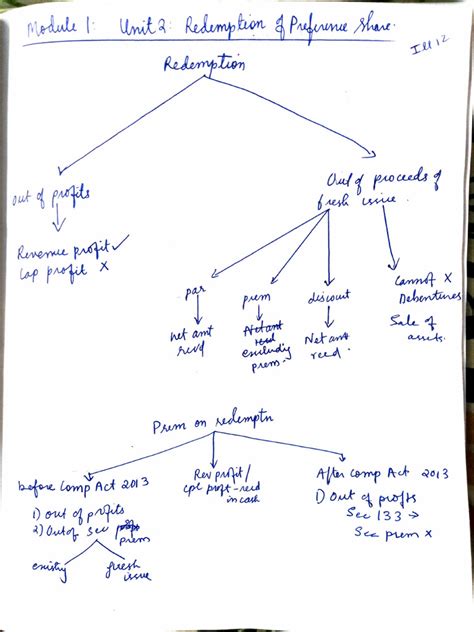 Module 1: Unit 2: Redemption of Preference Share.
Ill 12
Redemption
out of profits
Revenue profit ✓
Cap profit X
Out of proceeds of
fresh issue.
par
net amt
recvd
prem
Net amt
recd
excluding
prem.
discount
Net amt
recd.
Cannot X
Debentures
Sale of
assets.
Prem on redemptn
before Comp Act 2013
1) out of profits
2) Out of Sec
prem
existing
fresh
issue
Rev profit/
cptl profit - recd
in cash
After Comp Act 2013
1) Out of profits
Sec 133 →
Sec prem X